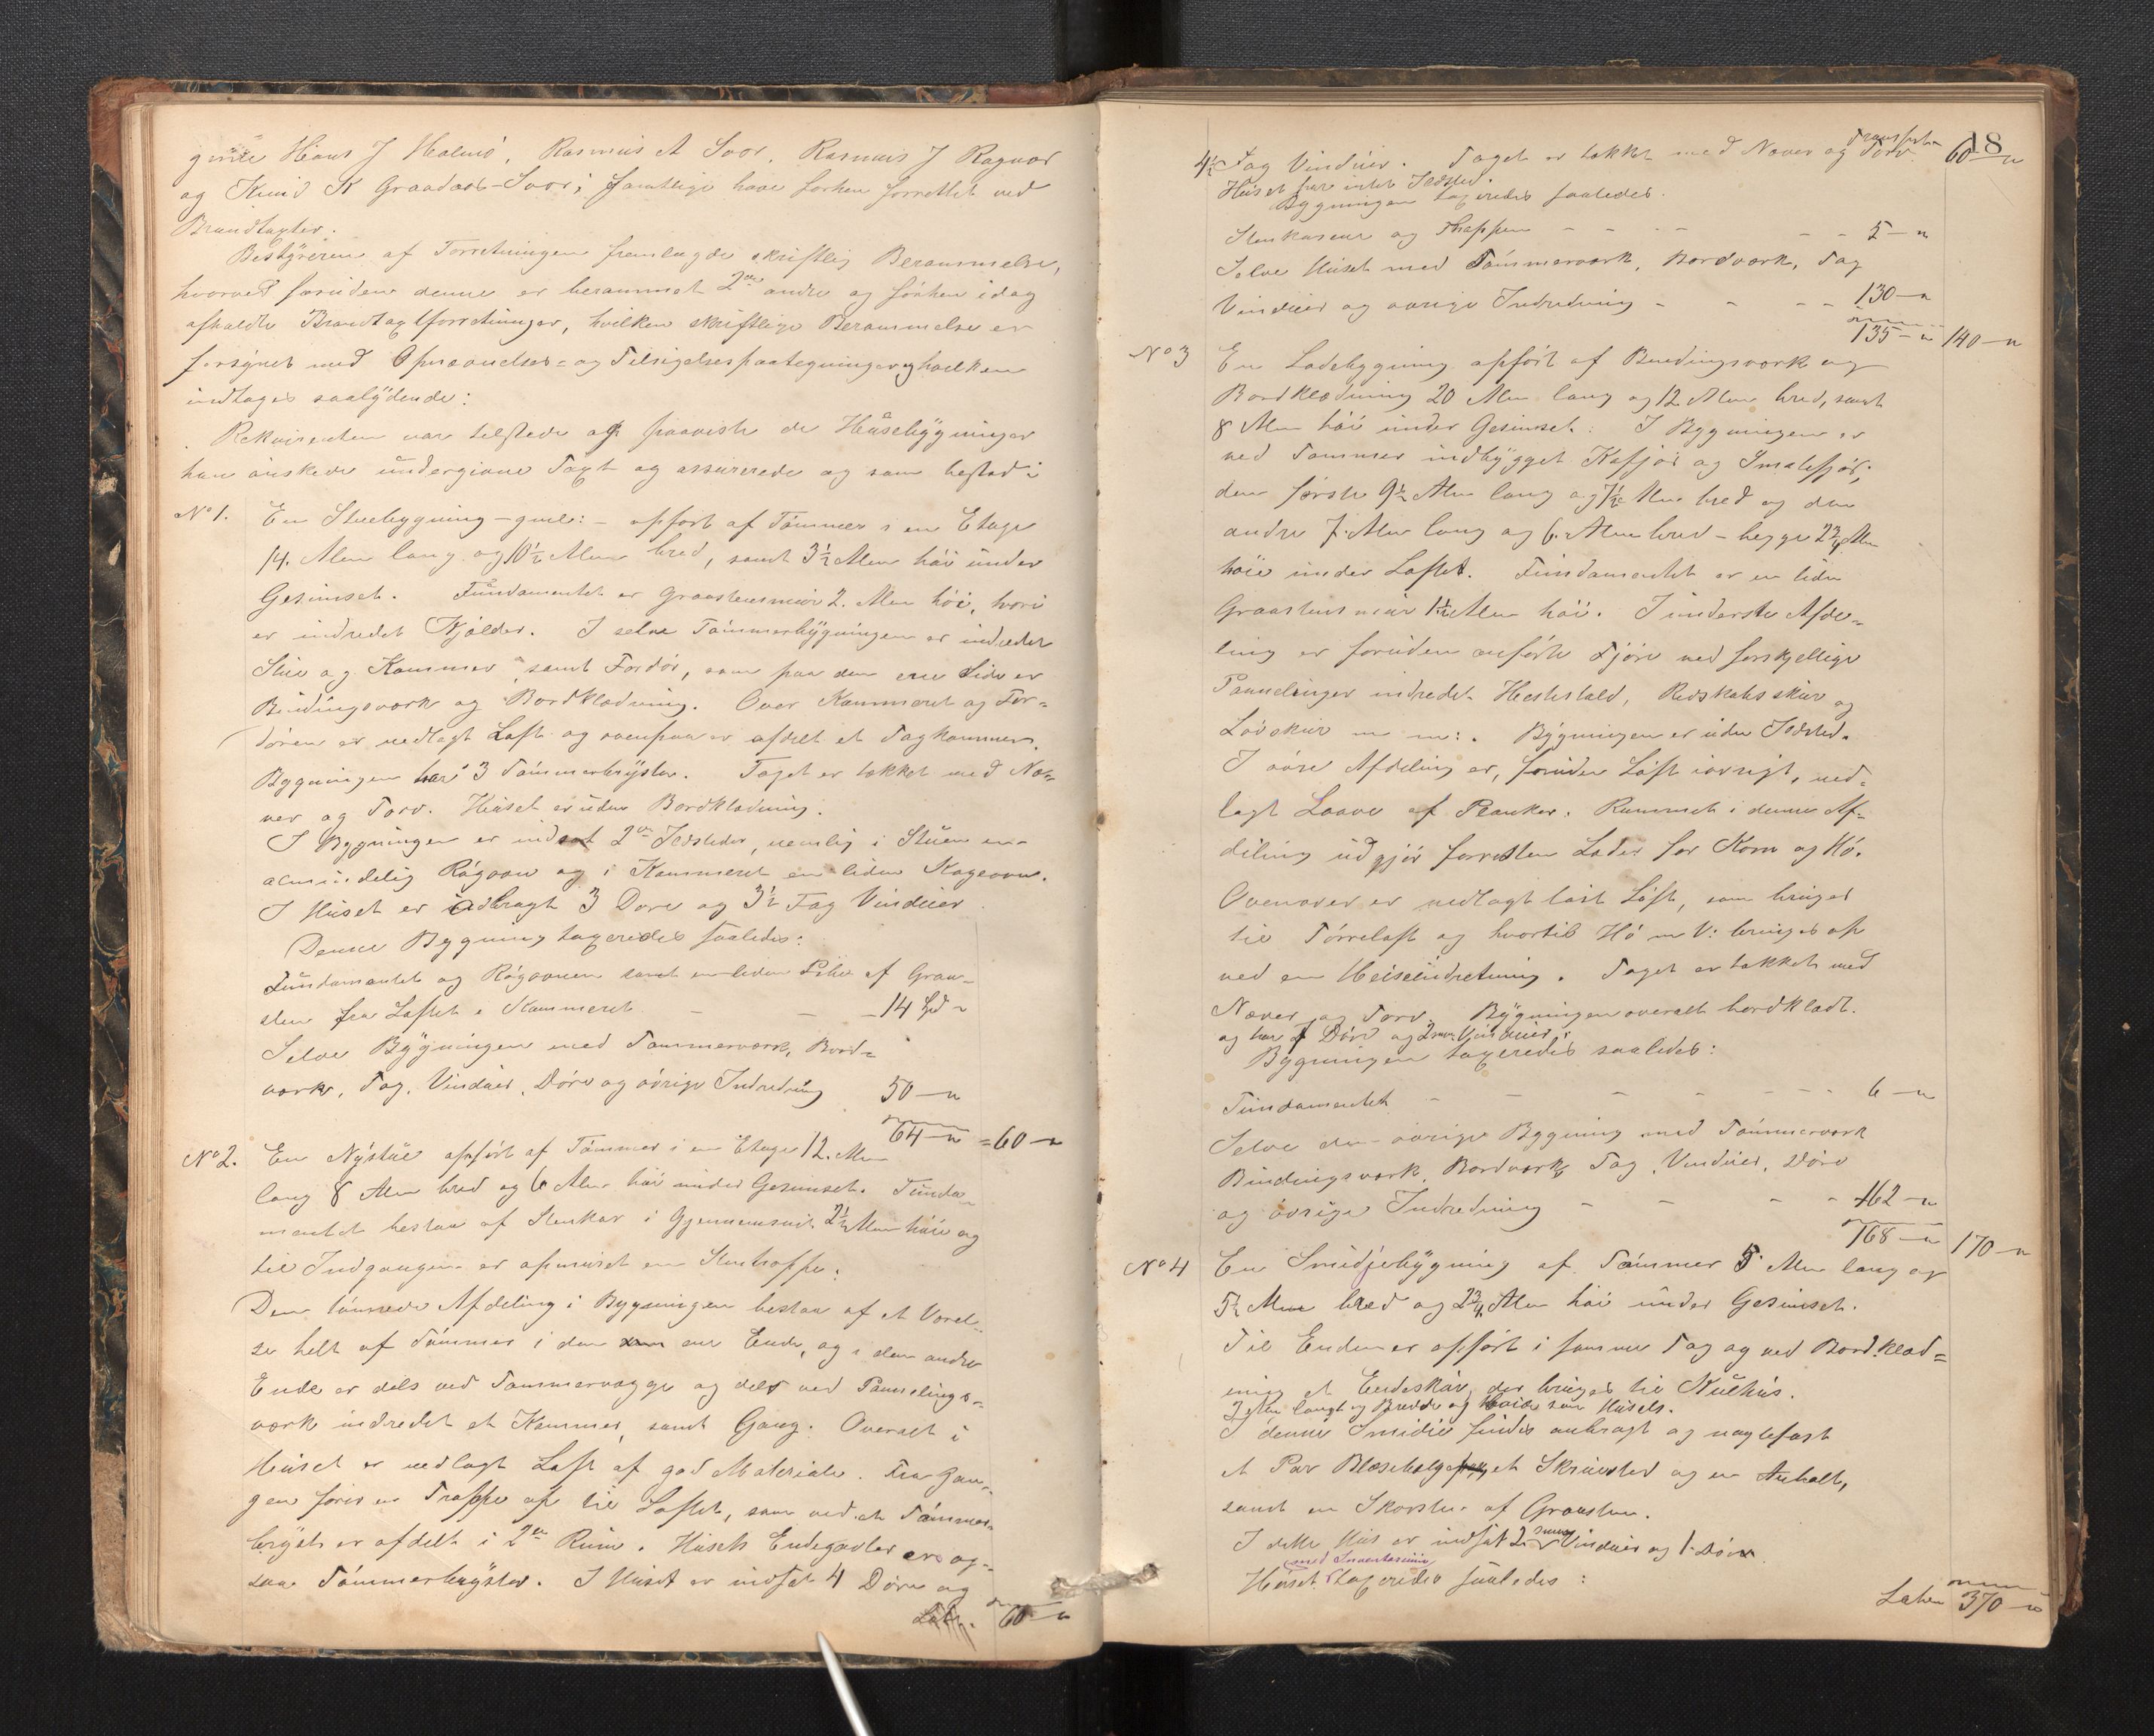 Hans J Malmö, Rasmus A Soor, Rasmus J Ragnar
og Knud K Graadas-Soor; samtlige have forhen forrettet ved
Brandtaxter.
Bestyreren af Forretningen fremlagde skriftlig Berammelse,
hvorved foruden denne er berammet 2de andre og forhen idag
afholdte Brandtaxtforretninger, hvilken skriftlige Berammelse er
forsynet med Opnævnelses- og Tilsigelsespaategninger og hvilken
indtages saalydende:
Rekvirenten var tilstede og paaviste de Huusebygninger
han önskede undergivne Taxt og assurerede og som bestod i
No 1. En Stuebygning - gml: - opfört af Tömmer i en Etage
14. Alen lang og 10½ Alen bred, samt 3½ Alen höi under
Gesimset. Fundamentet er Graastensmuur 2. Alen höi, hvori
er indredet Kjelder. I selve Tömmerbygningen er indredet
Stue og Kammer, samt Fordör, som paa den ene Side er
Bindingsværk og Bordklædning. Over Kammeret og For-
dören er nedlagt Loft og ovenpaa er afdelt et Tagkammer.
Bygningen har 3 Tömmerbryster. Taget er tækket med Næ-
ver og Torv. Huset er uden Bordklædning.
I Bygningen er indsat 2de Ildsteder, nemlig i Stuen en
almindelig Rögovn og i Kammeret en liden Kogeovn.
I Huset er indbragt 3 Döre og 3½ Fag Vinduer
Denne Bygning taxeredes saaledes:
Fundamentet og Rögovnen samt en liden Pibe af Graa-
sten fra Loftet i Kammeret - - - 14 Spd "
Selve Bygningen med Tömmerværk, Bord-
værk, Tag, Vinduer, Döre og övrige Indredning 50 — "
64 — " = 60 — "
No 2. En Nystue opfört af Tömmer i en Etage 12. Alen
lang 8 Alen bred og 6 Alen höi under Gesimset. Funda-
mentet bestaar af Stenkar i Gjennemsnit 2½ Alen höie og
til Indgangen er opmuret en Stentrappe.
Den tömrede Afdeling i Bygningen bestaar af et Værel-
se helt af Tömmer i den ene Ende, og i den andre
Ende er dels ved Tömmervægge og dels ved Pannelings-
værk indredet et Kammer, samt Gang. Overalt i
Huset er nedlagt Loft af god Materiale. Fra Gan-
gen förer en Trappe op til Loftet, som ved et Tömmer-
bryst er afdelt i 2de Rum. Husets Endegavler er og-
saa Tömmerbryster. I Huset er indsat 4 Döre og
60 — "
18
Transport
4½ Fag Vinduer. Taget er tækket med Næver og Torv. 60 — "
Huset har intet Ildsted.
Bygningen taxeredes saaledes.
Stenkarene og Trappen - - - - - - 5 — "
Selve Huset med Tömmerværk, Bordværk, Tag
Vinduer og övrige Indredning - - - - 130 — "
135 — " 140 — "
No 3 En Ladebygning opfört af Bindingsværk og
Bordklædning 20 Alen lang og 12 Alen bred, samt
8 Alen höi under Gesimset. I Bygningen er
ved Tömmer indbygget Kofjös og Smalefjös;
den förste 9½ Alen lang og 7½ Alen bred og den
andre 7. Alen lang og 6. Alen bred - begge 2¾ Alen
höie under Loftet. Fundamentet er en liden
Graastensmuur 1½ Alen höi. I underste Afde-
ling er foruden anförte Fjöse ved forskjellige
Pannelinger indredet Hestestald, Redskabsskur og
Lövskur m m:. Bygningen er uden Ildsted.
I övre Afdeling er, foruden Loft iövrigt, ned-
lagt Laave af Planker. Rummet i denne Af-
deling udgjör forresten Lader for Korn og Hö.
Ovenover er nedlagt löst Loft, som bruges
til Törreloft og hvortil Hö m V: bringes op
ved en Heiseindretning. Taget er tækket med
Næver og Torv. Bygningen overalt bordklædt.
og har 7 Döre og 2 smaa Vinduer.
Bygningen taxeredes saaledes:
Fundamentet - - - - - - 6 — "
Selve den övrige Bygning med Tömmerværk
Bindingsværk, Bordværk, Tag, Vinduer, Döre
og övrige Indredning - - - - 162 — "
168 — " 170 — "
No 4 En Smidjebygning af Tömmer 5 Alen lang og
5½ Alen bred og 2¾ Alen höi under Gesimset.
Til Enden er opfört i samme Tag og ved Bordklæd-
ning et Endeskur, der bruges til Kulhus.
3 Alen langt og Bredde og Höide som Husets.
I denne Smidie findes anbragt og naglefast
et Par Blæsebelge, et Skruested og en Anbolt,
samt en Skorsten af Graasten.
I dette Hus er indsat 2 smaa Vinduer og 1. Dör.
med Inventarium
Huset taxeredes saaledes:
Latus 370 — "